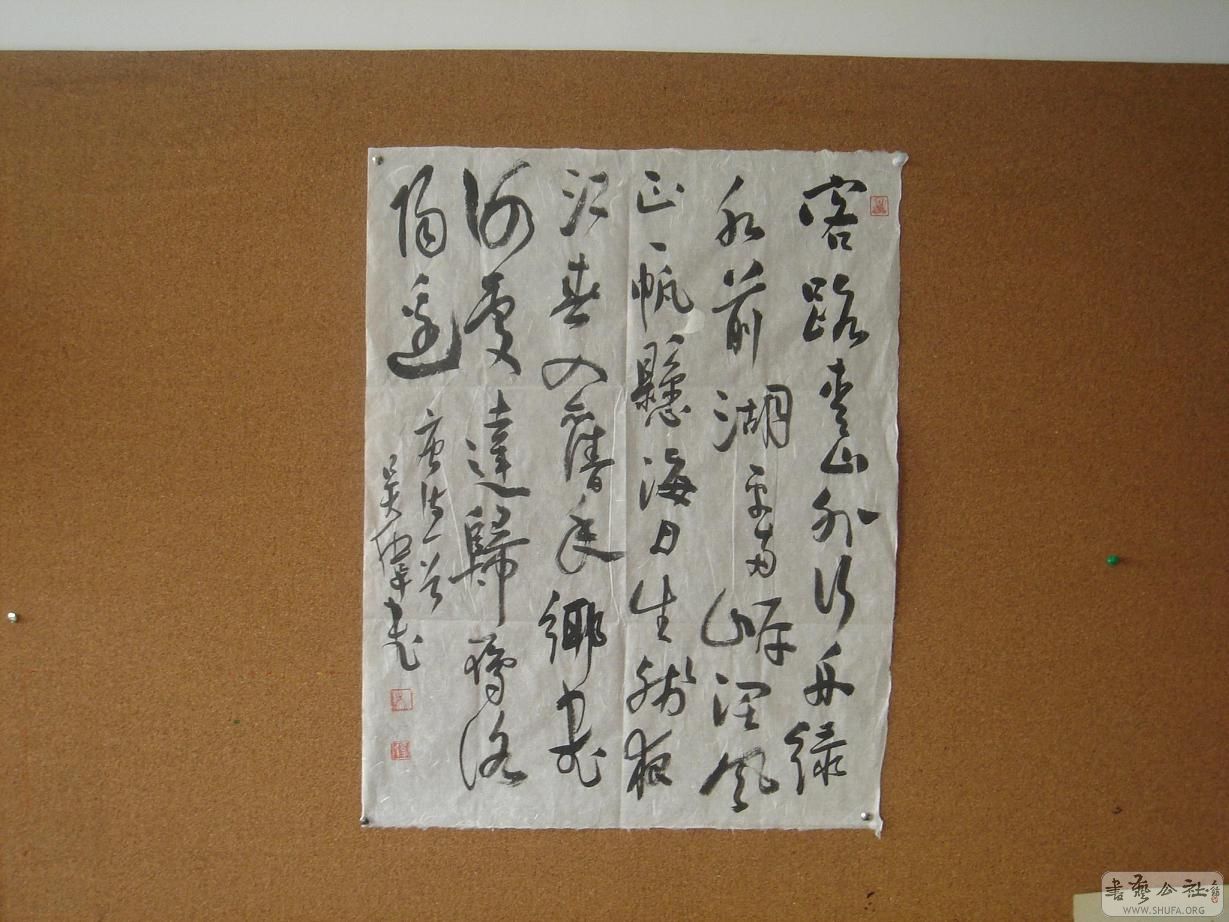 客路青山外行舟緑
水前湖平兩岸闊風
正一帆懸海日生殘夜
江春入舊年鄉書
何處達歸雁洛
陽邊
唐詩一首
吴偉書
書藝公社
WWW.SHUFA.ORG